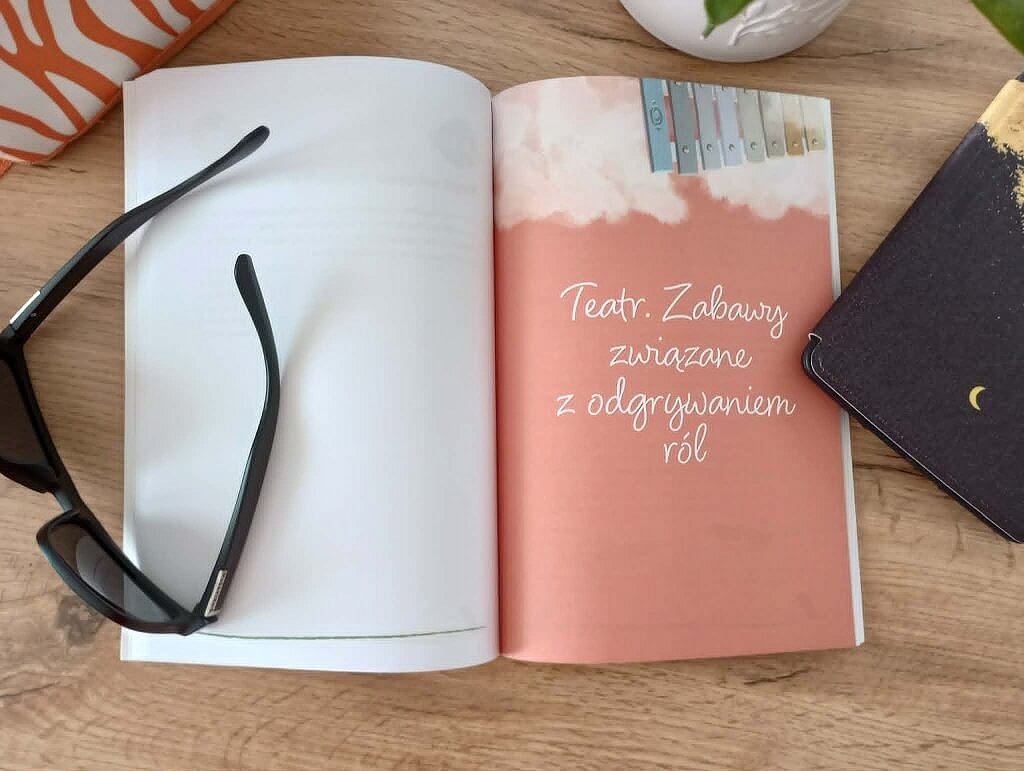 Teatr. Zabawy
związane
z odgrywaniem
ról